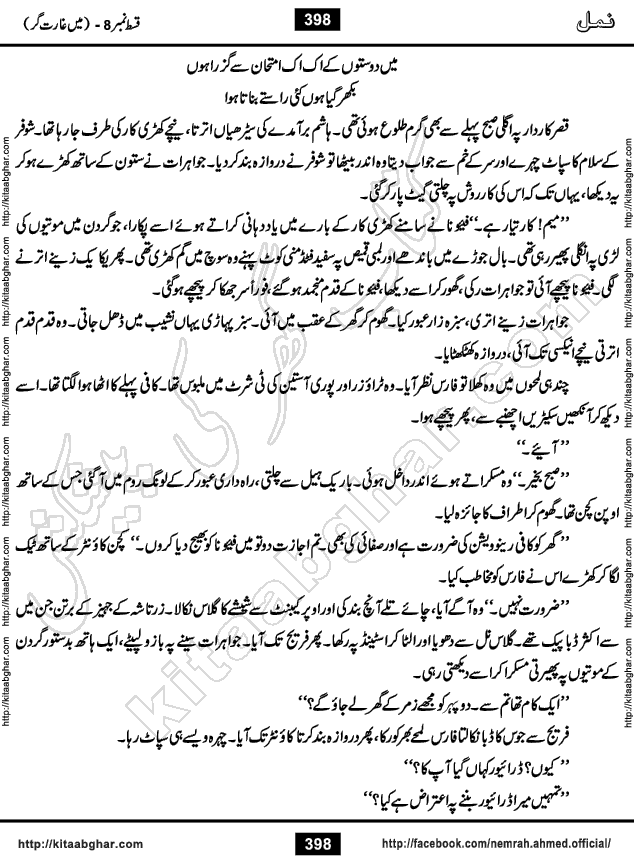 نمل
398
قسط نمبر 8 - (میں غارت گر)
میں دوستوں کے اک اک امتحان سے گزرا ہوں
بکھر گیا ہوں کئی راستے بناتا ہوا
قصر کاردار پہ اگلی صبح پہلے سے بھی گرم طلوع ہوئی تھی۔ ہاشم برآمدے کی سیڑھیاں اترتا، نیچے کھڑی کار کی طرف جا رہا تھا۔ شوفر
کے سلام کا سپاٹ چہرے اور سر کے خم سے جواب دیتا وہ اندر بیٹھا تو شوفر نے دروازہ بند کر دیا۔ جواہرات نے ستون کے ساتھ کھڑے ہو کر
یہ دیکھا، یہاں تک کہ اس کی کار روش پہ چلتی گیٹ پار کر گئی۔
’’میم! کار تیار ہے۔‘‘ فیئونا نے سامنے کھڑی کار کے بارے میں یاد دہانی کراتے ہوئے اسے پکارا، جو گردن میں موتیوں کی
لڑی پہ انگلی پھیر رہی تھی۔ بال جوڑے میں باندھے اور لمبی قمیص پہ سفید فٹڈ منی کوٹ پہنے وہ سوچ میں گم کھڑی تھی۔ پھر یکا یک زینے اترنے
لگی۔ فیئونا پیچھے آئی تو جواہرات رکی، گھور کر اسے دیکھا، فیئونا کے قدم منجمد ہو گئے، فوراً سر جھکا کر پیچھے ہو گئی۔
جواہرات زینے اتری، سبزہ زار عبور کیا۔ گھوم کر گھر کے عقب میں آئی۔ سبز پہاڑی یہاں نشیب میں ڈھل جاتی۔ وہ قدم قدم
اترتی نیچے انیکسی تک آئی، دروازہ کھٹکھٹایا۔
چند ہی لمحوں میں وہ کھلا تو فارس نظر آیا۔ وہ ٹراؤزر اور پوری آستین کی ٹی شرٹ میں ملبوس تھا۔ کافی پہلے کا اٹھا ہوا لگتا تھا۔ اسے
دیکھ کر آنکھیں سکیڑیں اچنبھے سے، پھر پیچھے ہوا۔
’’آیئے۔‘‘
’’صبح بخیر۔‘‘ وہ مسکراتے ہوئے اندر داخل ہوئی۔ باریک ہیل سے چلتی، راہداری عبور کر کے لونگ روم میں آ گئی جس کے ساتھ
اوپن کچن تھا۔ گھوم کر اطراف کا جائزہ لیا۔
’’گھر کو کافی رینوویشن کی ضرورت ہے اور صفائی کی بھی۔ تم اجازت دو تو میں فیئونا کو بھیج دیا کروں۔‘‘ کچن کاؤنٹر کے ساتھ ٹیک
لگا کر کھڑے اس نے فارس کو مخاطب کیا۔
’’ضرورت نہیں۔‘‘ وہ آگے آیا، چائے تلے آنچ بند کی اور اوپر کیبنٹ سے شیشے کا گلاس نکالا۔ زرتاشہ کے جہیز کے برتن جن میں
سے اکثر ڈبا پیک تھے۔ گلاس نل سے دھویا اور الٹا کر اسٹینڈ پہ رکھا۔ پھر فریج تک آیا۔ جواہرات سینے پہ بازو لپیٹے، ایک ہاتھ بدستور گردن
کے موتیوں پہ پھیرتی مسکرا کر اسے دیکھتی رہی۔
’’ایک کام تھا تم سے۔ دوپہر کو مجھے زمر کے گھر لے جاؤ گے؟‘‘
فریج سے جوس کا ڈبا نکالتا فارس لمحے بھر کو رکا، پھر دروازہ بند کرتا کاؤنٹر تک آیا۔ چہرہ ویسے ہی سپاٹ رہا۔
’’کیوں؟ ڈرائیور کہاں گیا آپ کا؟‘‘
’’تمہیں میرا ڈرائیور بننے پہ اعتراض ہے کیا؟‘‘
http://kitaabghar.com
http://kitaabghar.com
http://kitaabghar.com
http://kitaabghar.com
http://kitaabghar.com
http://kitaabghar.com
http://kitaabghar.com
http://kitaabghar.com
http://kitaabghar.com
http://kitaabghar.com
http://kitaabghar.com
http://kitaabghar.com
کتاب گھر کی پیشکش
kitaabghar.com
http://kitaabghar.com
398
http://facebook.com/nemrah.ahmed.official/